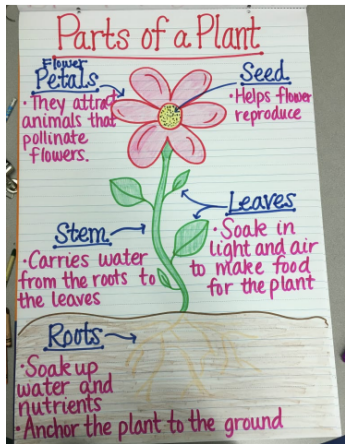 Parts of a Plant
Flower
Petals
• They attract
animals that
pollinate
flowers.
Seed
• Helps flower
reproduce
Leaves
• Soak in
light and air
to make food
for the plant
Stem
• Carries water
from the roots to
the leaves
Roots
• Soak up
water and
nutrients
• Anchor the plant to the ground